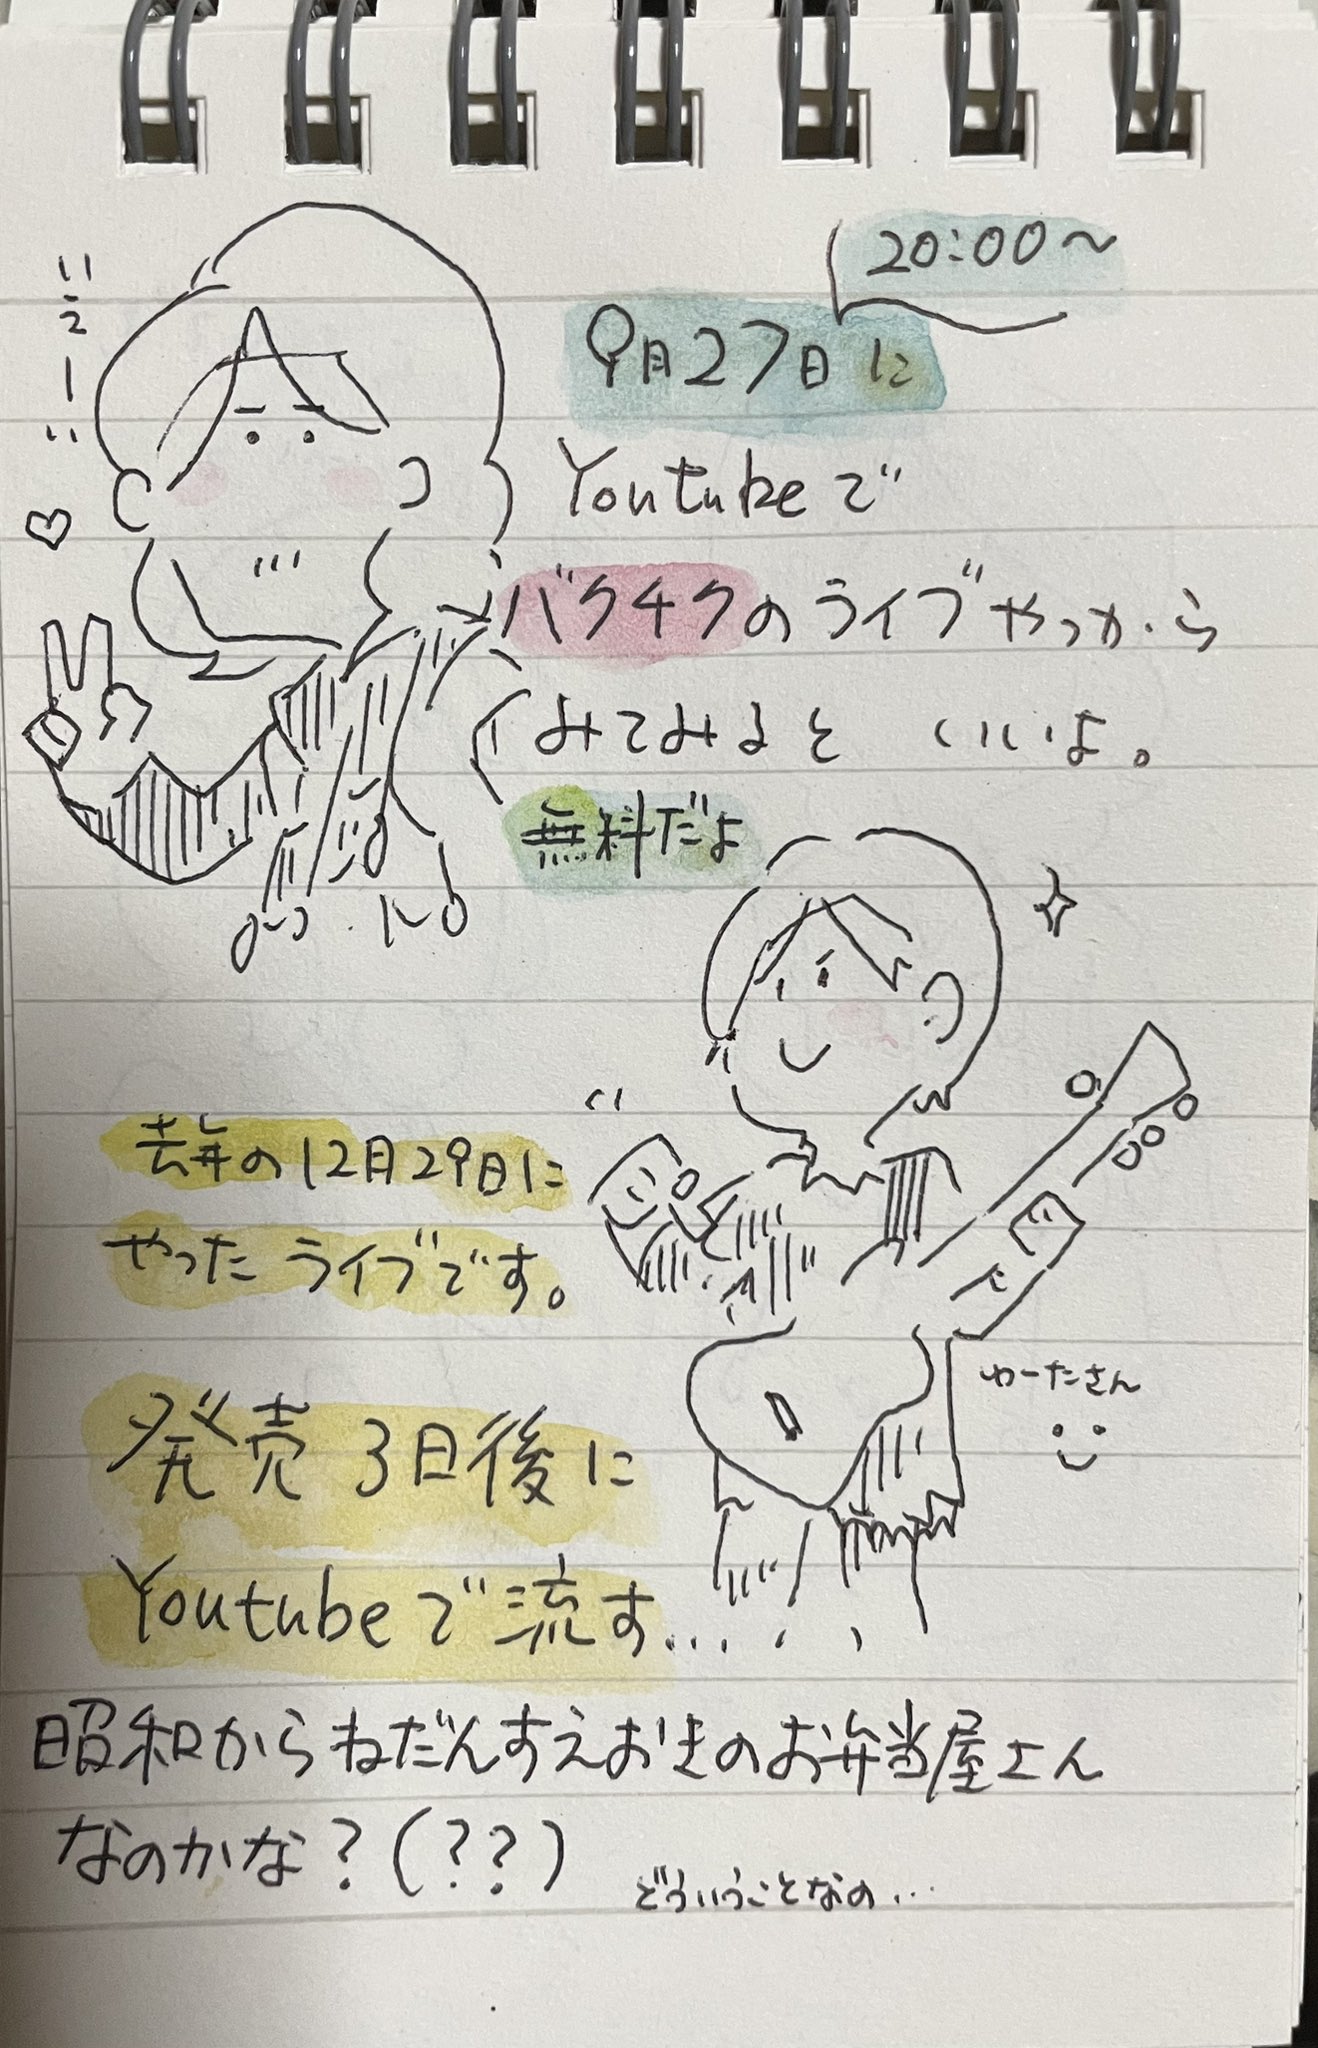 20:00～
9月27日に
Youtubeで
バクチクのライブやっから
みてみると いいよ。
無料だよ
去年の12月29日に
やったライブです。
ゆーたさん
発売3日後に
Youtubeで流す...
昭和からねだんすえおきのお弁当屋さん
なのかな?(??)
どういうことなの...